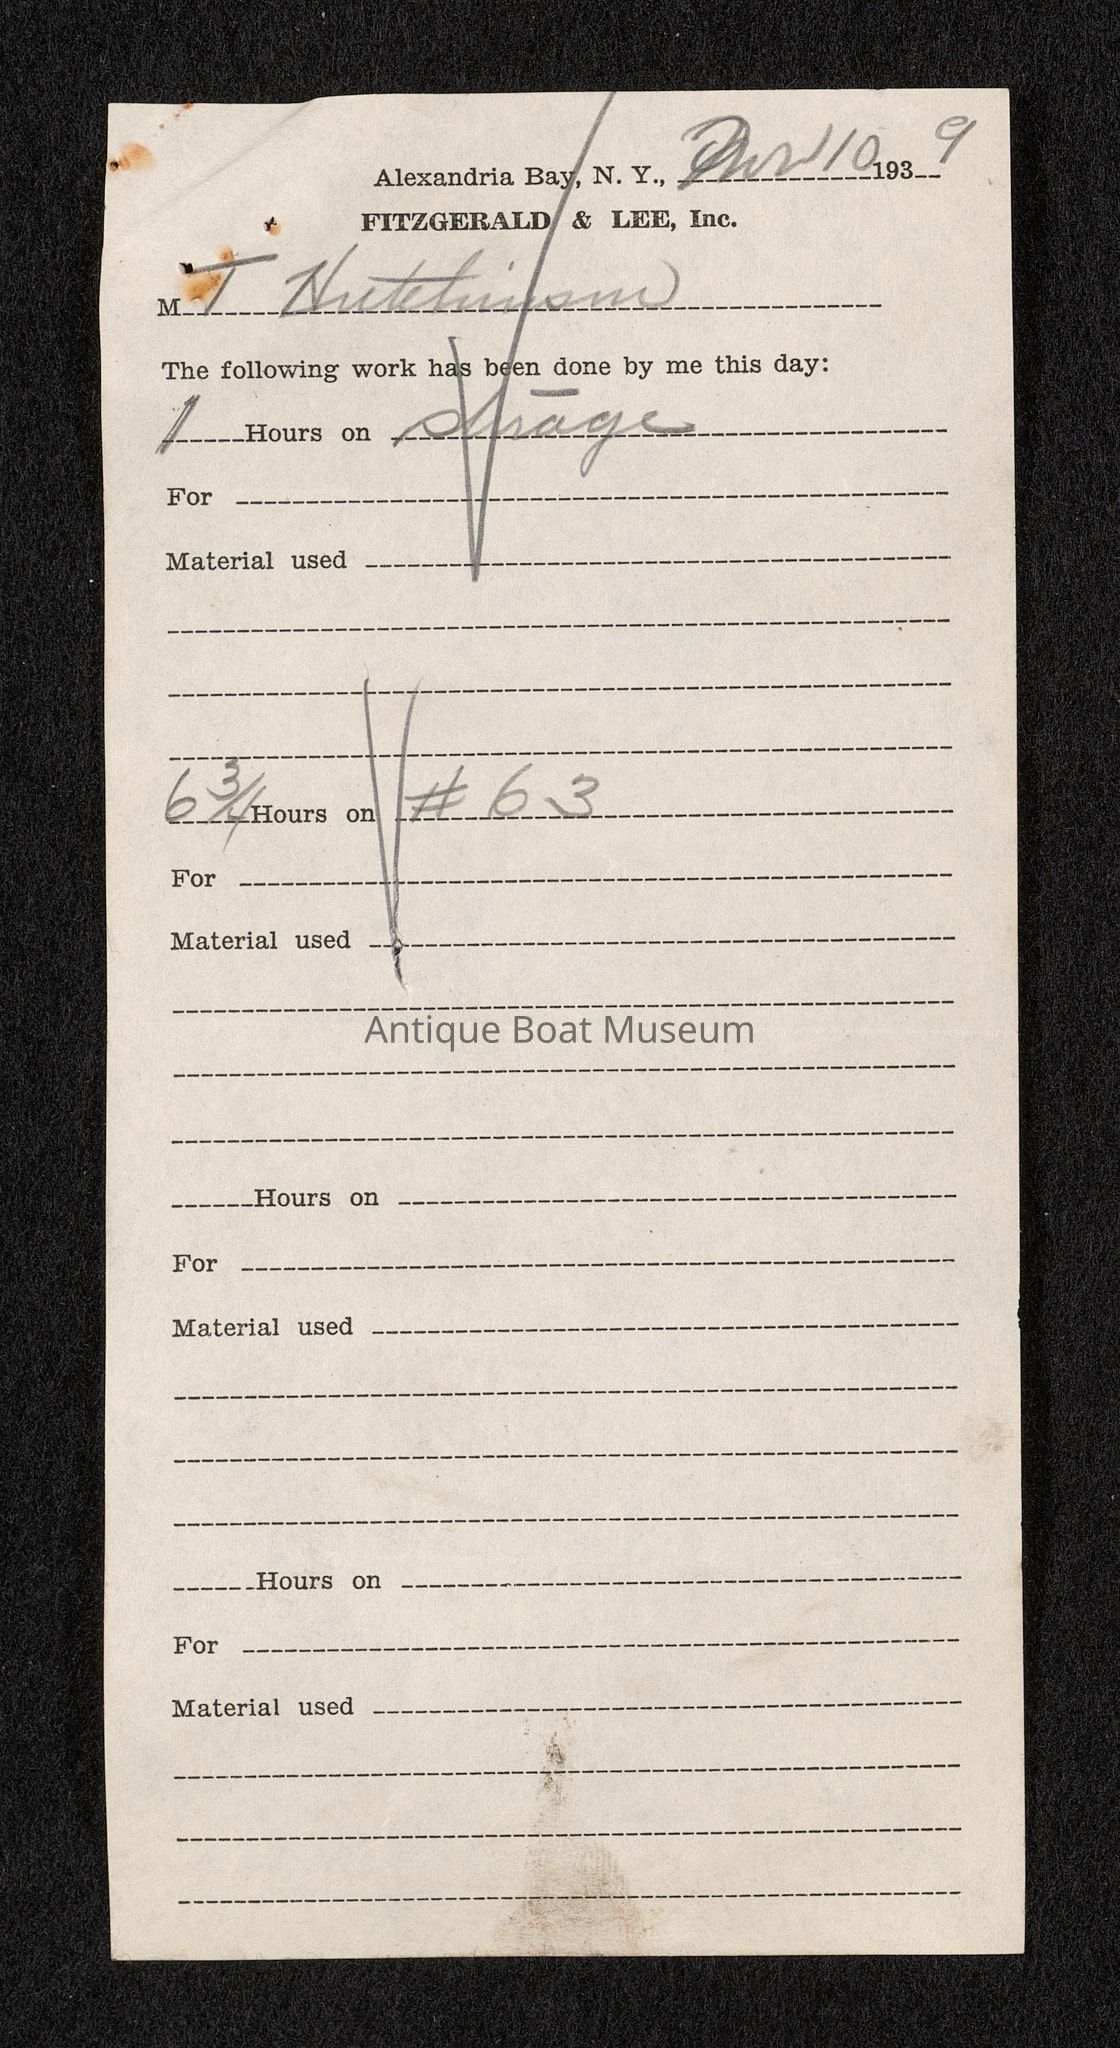 Alexandria Bay, N. Y., Nov 10 1939
FITZGERALD & LEE, Inc.
M T Hutchinson
The following work has been done by me this day:
1 Hours on storage
For
Material used
6 3/4 Hours on # 63
For
Material used
Antique Boat Museum
Hours on
For
Material used
Hours on
For
Material used